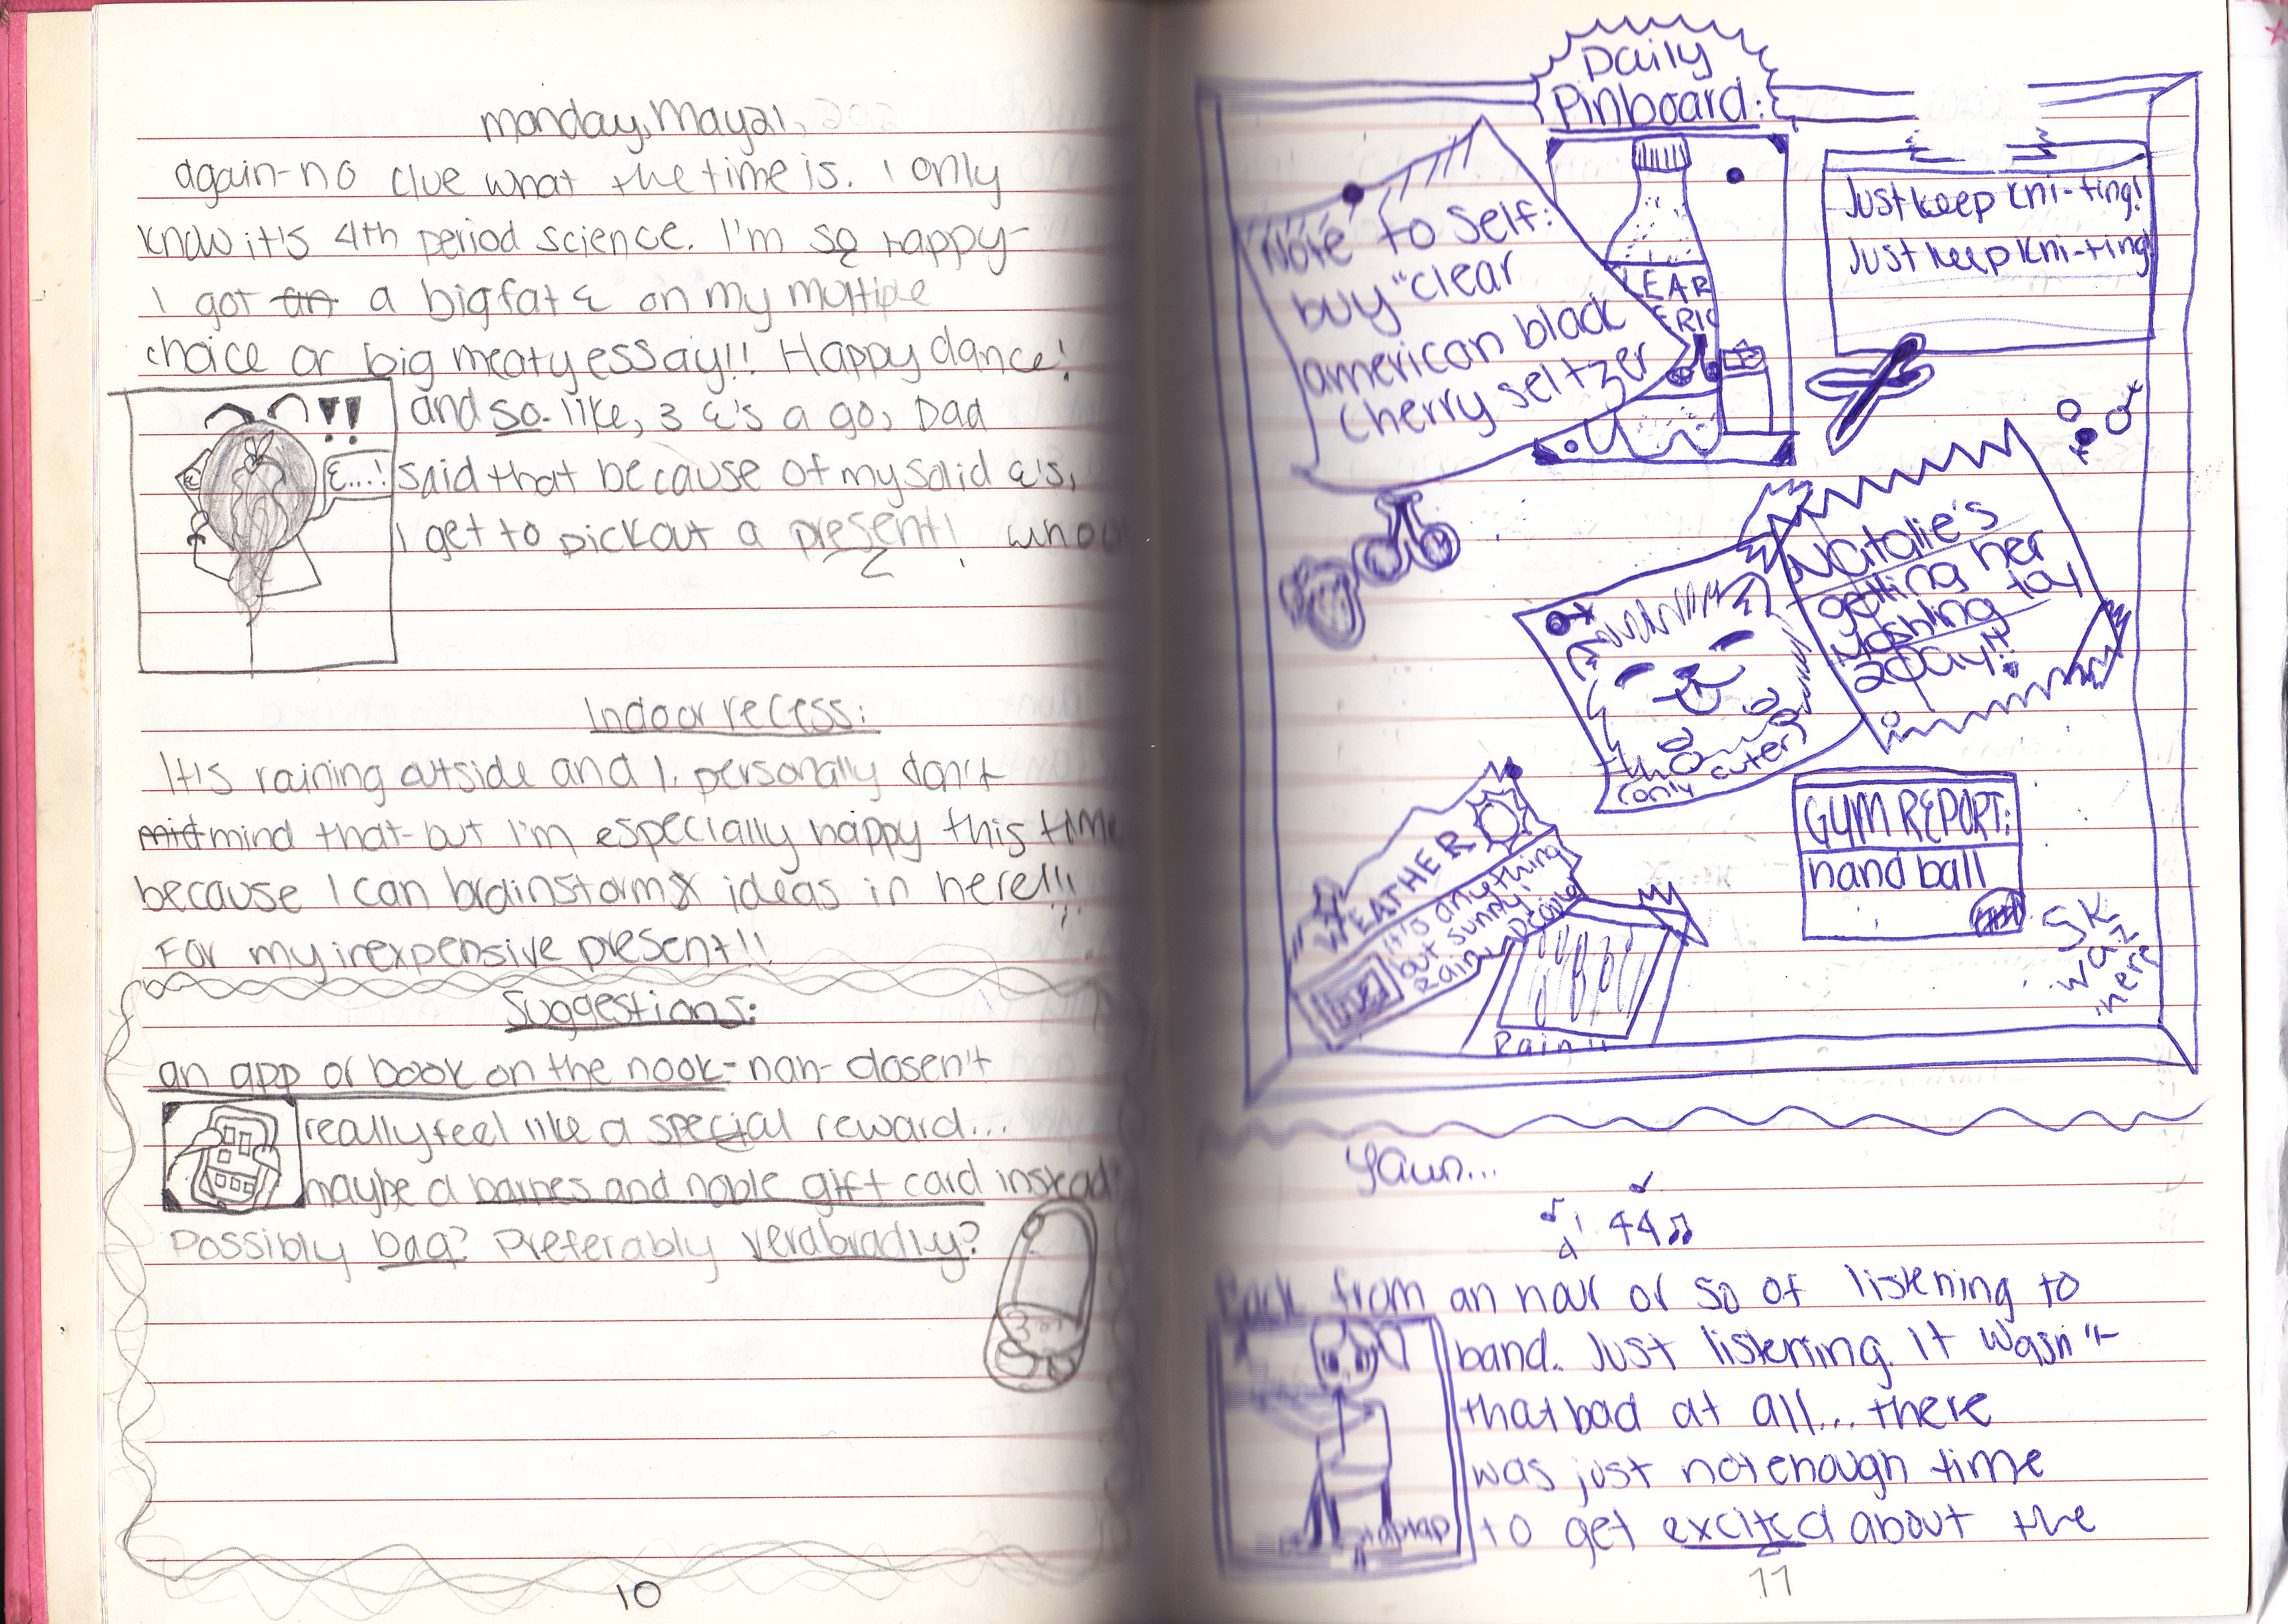 monday, May 21,
again-no clue what the time is. I only
know it's 4th period science. I'm so happy-
I got an a big fat E on my multiple
choice or big meaty essay!!! Happy dance!
and so- like, 3 E's a go, Dad
!!
E...!
E
said that because of my solid E's,
I get to pick out a present!
Indoor recess:
It's raining outside and I, personally don't
mind that-but I'm especially happy this time
because I can brainstorm ideas in here!!!
For my inexpensive present!!
Suggestions:
an app or book on the nook-nah-dosen't
really feel like a special reward...
maybe a barnes and noble gift card instead?
Possibly bag? Preferably verabradly?
10
Daily
Pinboard:
Note to Self:
buy "clear
american black
cherry seltzer
LEAR
ERIC
Just keep kni-ting!
Just keep kni-ting!
Natalie's
getting her
Yoshling toy
2day!!
(only
cuter)
WEATHER
it's anything
but sunny!
Rain
Rain!!
GYM REPORT:
hand ball
SK
waz
here
Yawn...
Back from an hour or so of listening to
band. Just listening. It wasn't
that bad at all... there
was just not enough time
to get excited about the
taptap
11